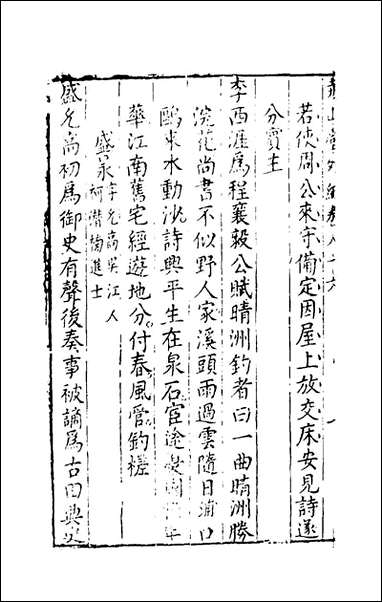 堯山堂外紀卷八十六
若使周公來守備定因屋上放交床安見詩遂
分賓主
李西涯爲程襄毅公賦晴洲釣者曰一曲晴洲勝
浣花尚書不似野人家溪頭雨過雲隨日浦口
鷗來水動沙詩興平生在泉石宦途年
華江南舊宅經遊地分付春風管釣槎
盛字允高吳江人
柯潛榜進士
盛允高初爲御史有聲後奏事被謫爲古田典史